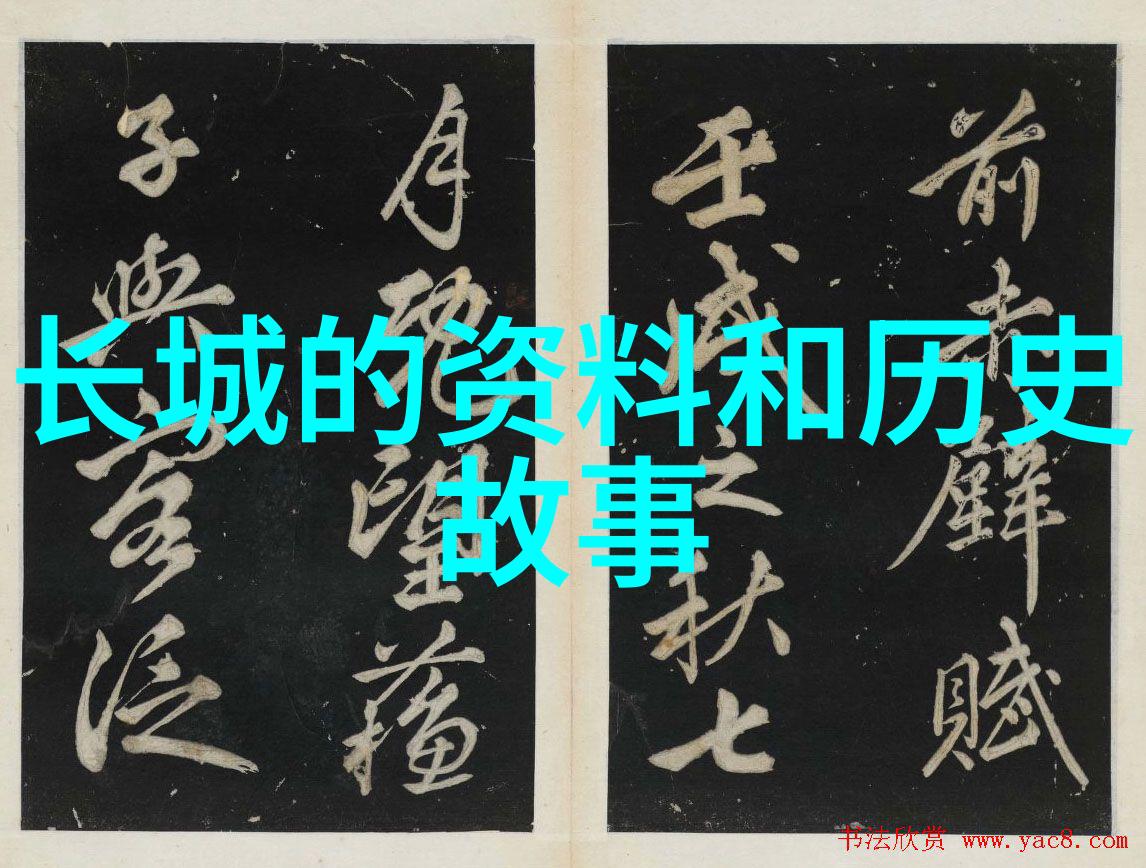 长城的资料和历史
故事
前赤壁賦
壬戌之秋七
月既望蘓
子與客泛
书法欣赏 www.yac8.com